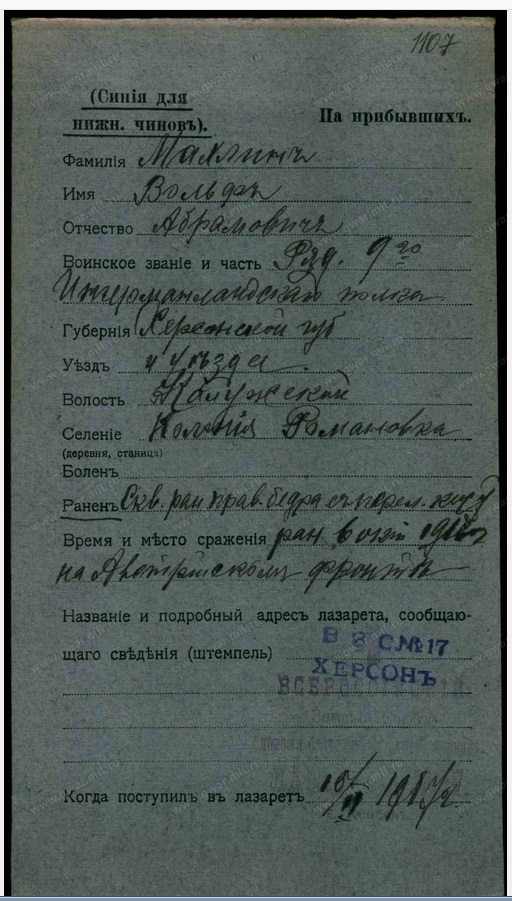 1107
(Синія для
нижн. чиновъ).
На прибывшихъ.
Фамилія Махлинъ
Имя Вольфъ
Отчество Абрамовичъ
Воинское званіе и часть Ряд. 9го
Ингерманландскаго полка
Губернія Херсонской губ
Уѣздъ и уѣзда.
Волость Калужской
Селеніе Колонія Романовка
(деревня, станица)
Боленъ
Раненъ Скв. ран прав. бедра съ перел. кости
Время и мѣсто сраженія ран. 6 окт
на Австрійскомъ фронтѣ
Названіе и подробный адресъ лазарета, сообщаю-
щаго свѣдѣнія (штемпель)
В З С № 17
ХЕРСОНЪ
Когда поступилъ въ лазаретъ